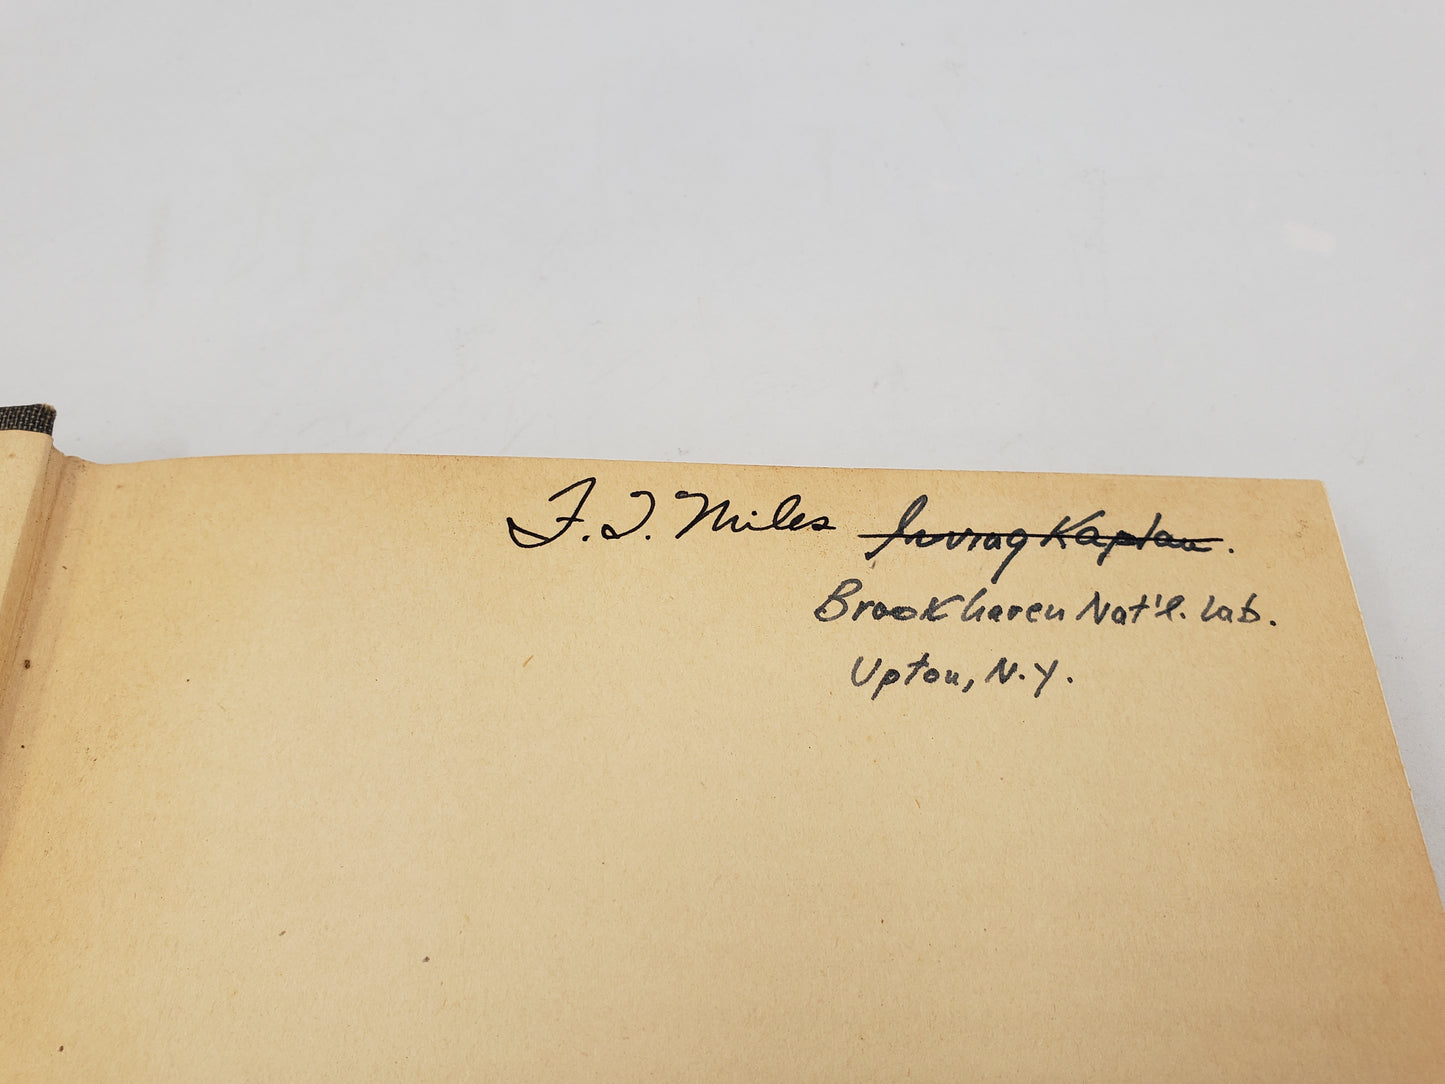 F. T. Miles Irving Kaplan.
Brookhaven Nat'l. Lab.
Upton, N.Y.